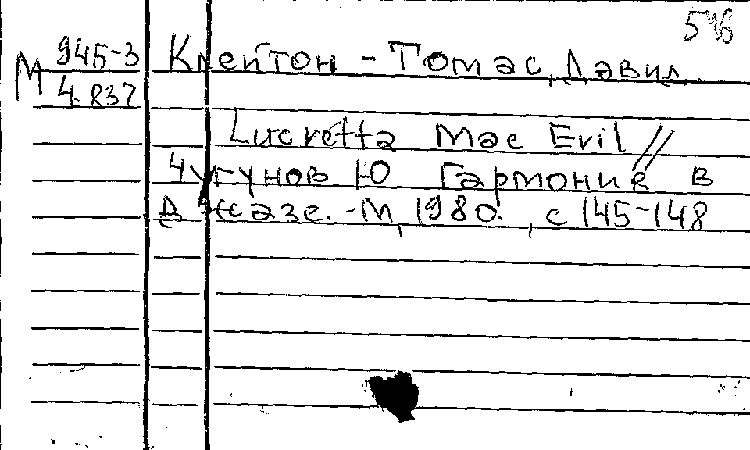 596
М 945-3
4.837
Клейтон-Томас, Давид
Lucretta Mac Evil //
Чугунов Ю Гармония в
джазе. -М, 1980. , с 145-148